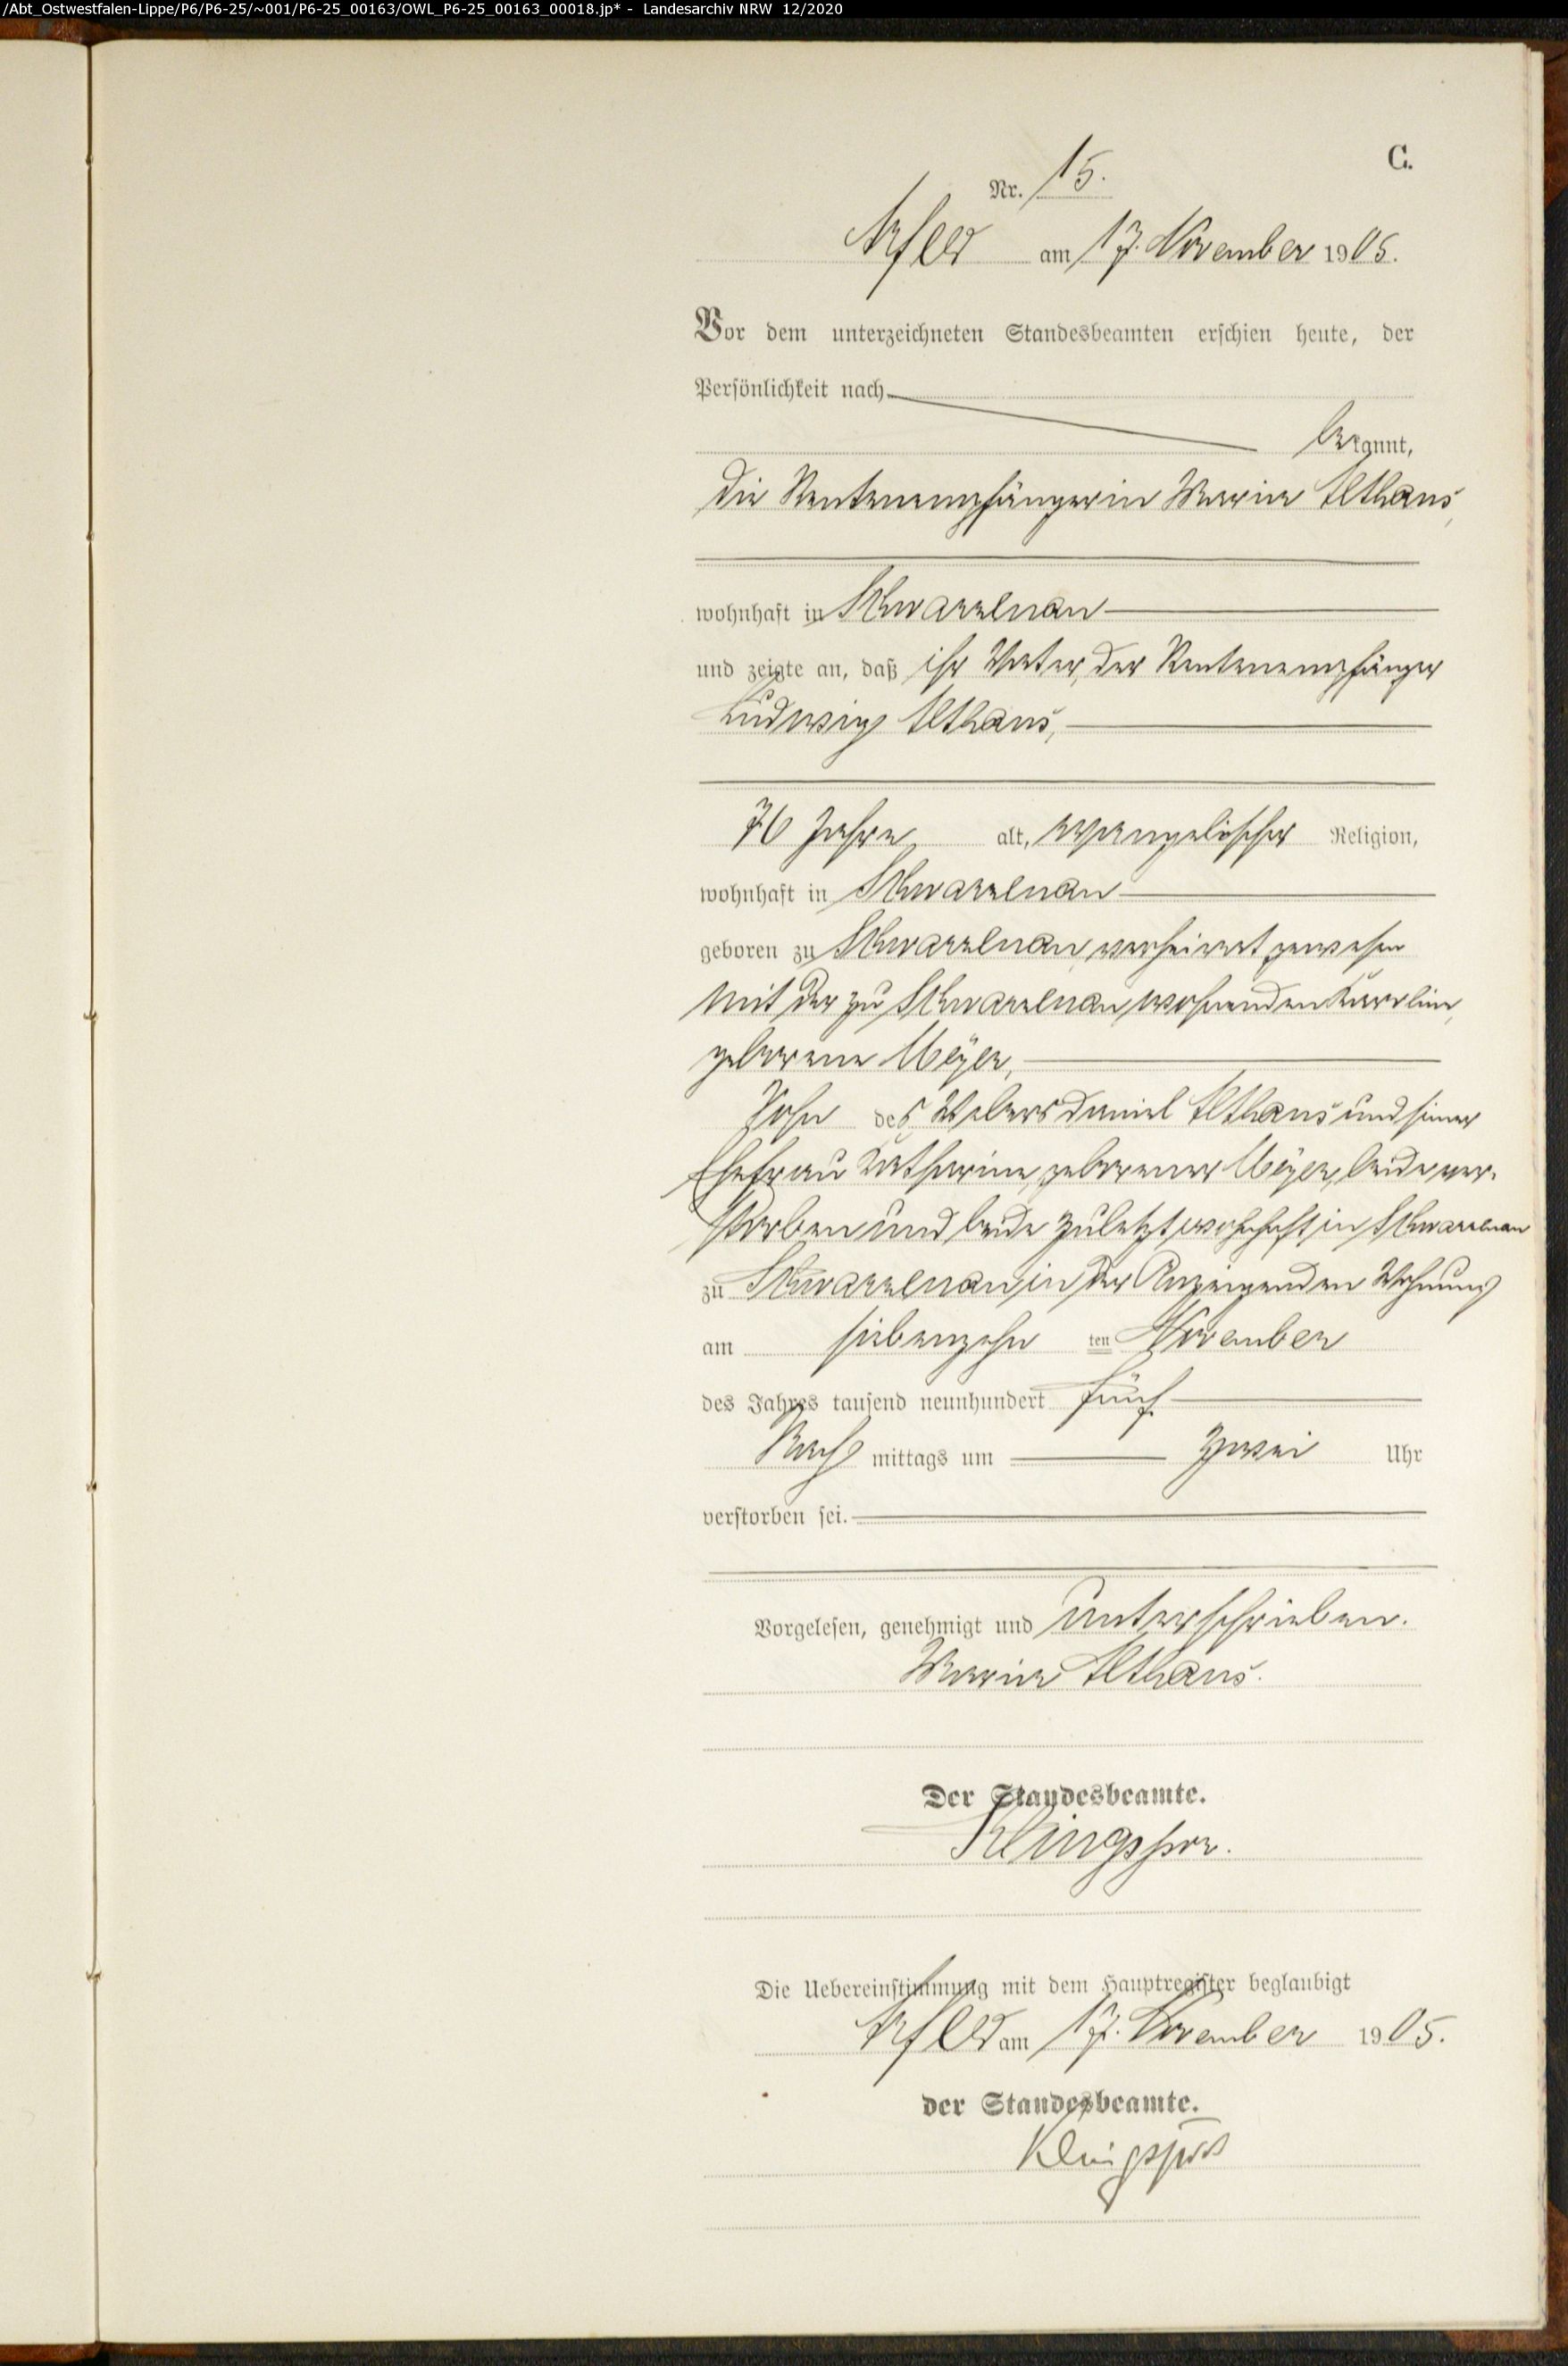 /Abt_Ostwestfalen-Lippe/P6/P6-25/~001/P6-25_00163/OWL_P6-25_00163_00018.jp* - Landesarchiv NRW 12/2020
C.
Nr. 15.
Arfeld am 17. November 1905.
Vor dem unterzeichneten Standesbeamten erschien heute, der
Persönlichkeit nach
bekannt,
die Rentenempfängerin Marie Althaus,
wohnhaft in Schwarzenau
und zeigte an, daß ihr Vater, der Rentenempfänger
Ludwig Althaus,
76 Jahre alt, evangelischer Religion,
wohnhaft in Schwarzenau
geboren zu Schwarzenau, verheirat gewesen
mit der zu Schwarzenau wohnenden Karoline,
geborene Meyer,
Sohn des Webers Daniel Althaus und seiner
Ehefrau Katharine, geborener Meyer, beide ver-
storben und beide zuletzt wohnhaft in Schwarzenau
zu Schwarzenau, in der Anzeigenden Wohnung
am siebenzehn ten November
des Jahres tausend neunhundert fünf
Nach mittags um zwei Uhr
verstorben sei.
Vorgelesen, genehmigt und unterschrieben.
Marie Althaus.
Der Standesbeamte.
Klingspor.
Die Uebereinstimmung mit dem Hauptregister beglaubigt
Arfeld am 17. November 1905.
der Standesbeamte.
Klingspor